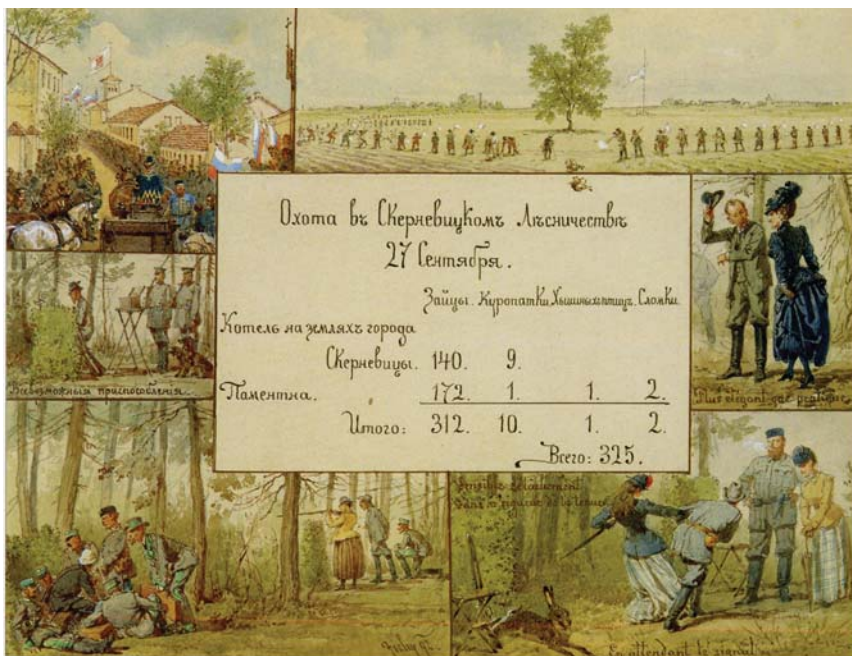 Охота въ Скерневицкомъ Лѣсничествѣ
27 Сентября.
Зайцы. Куропатки. Хищныхъ птицъ. Сломки.
Котелъ на земляхъ города
Скерневицы. 140. 9.
Паментна. 172. 1. 1. 2.
Итого: 312. 10. 1. 2.
Всего: 325.
Всевозможныя приспособленія.
Plus élégant que pratique
dans la
En attendant le signal
Zichy